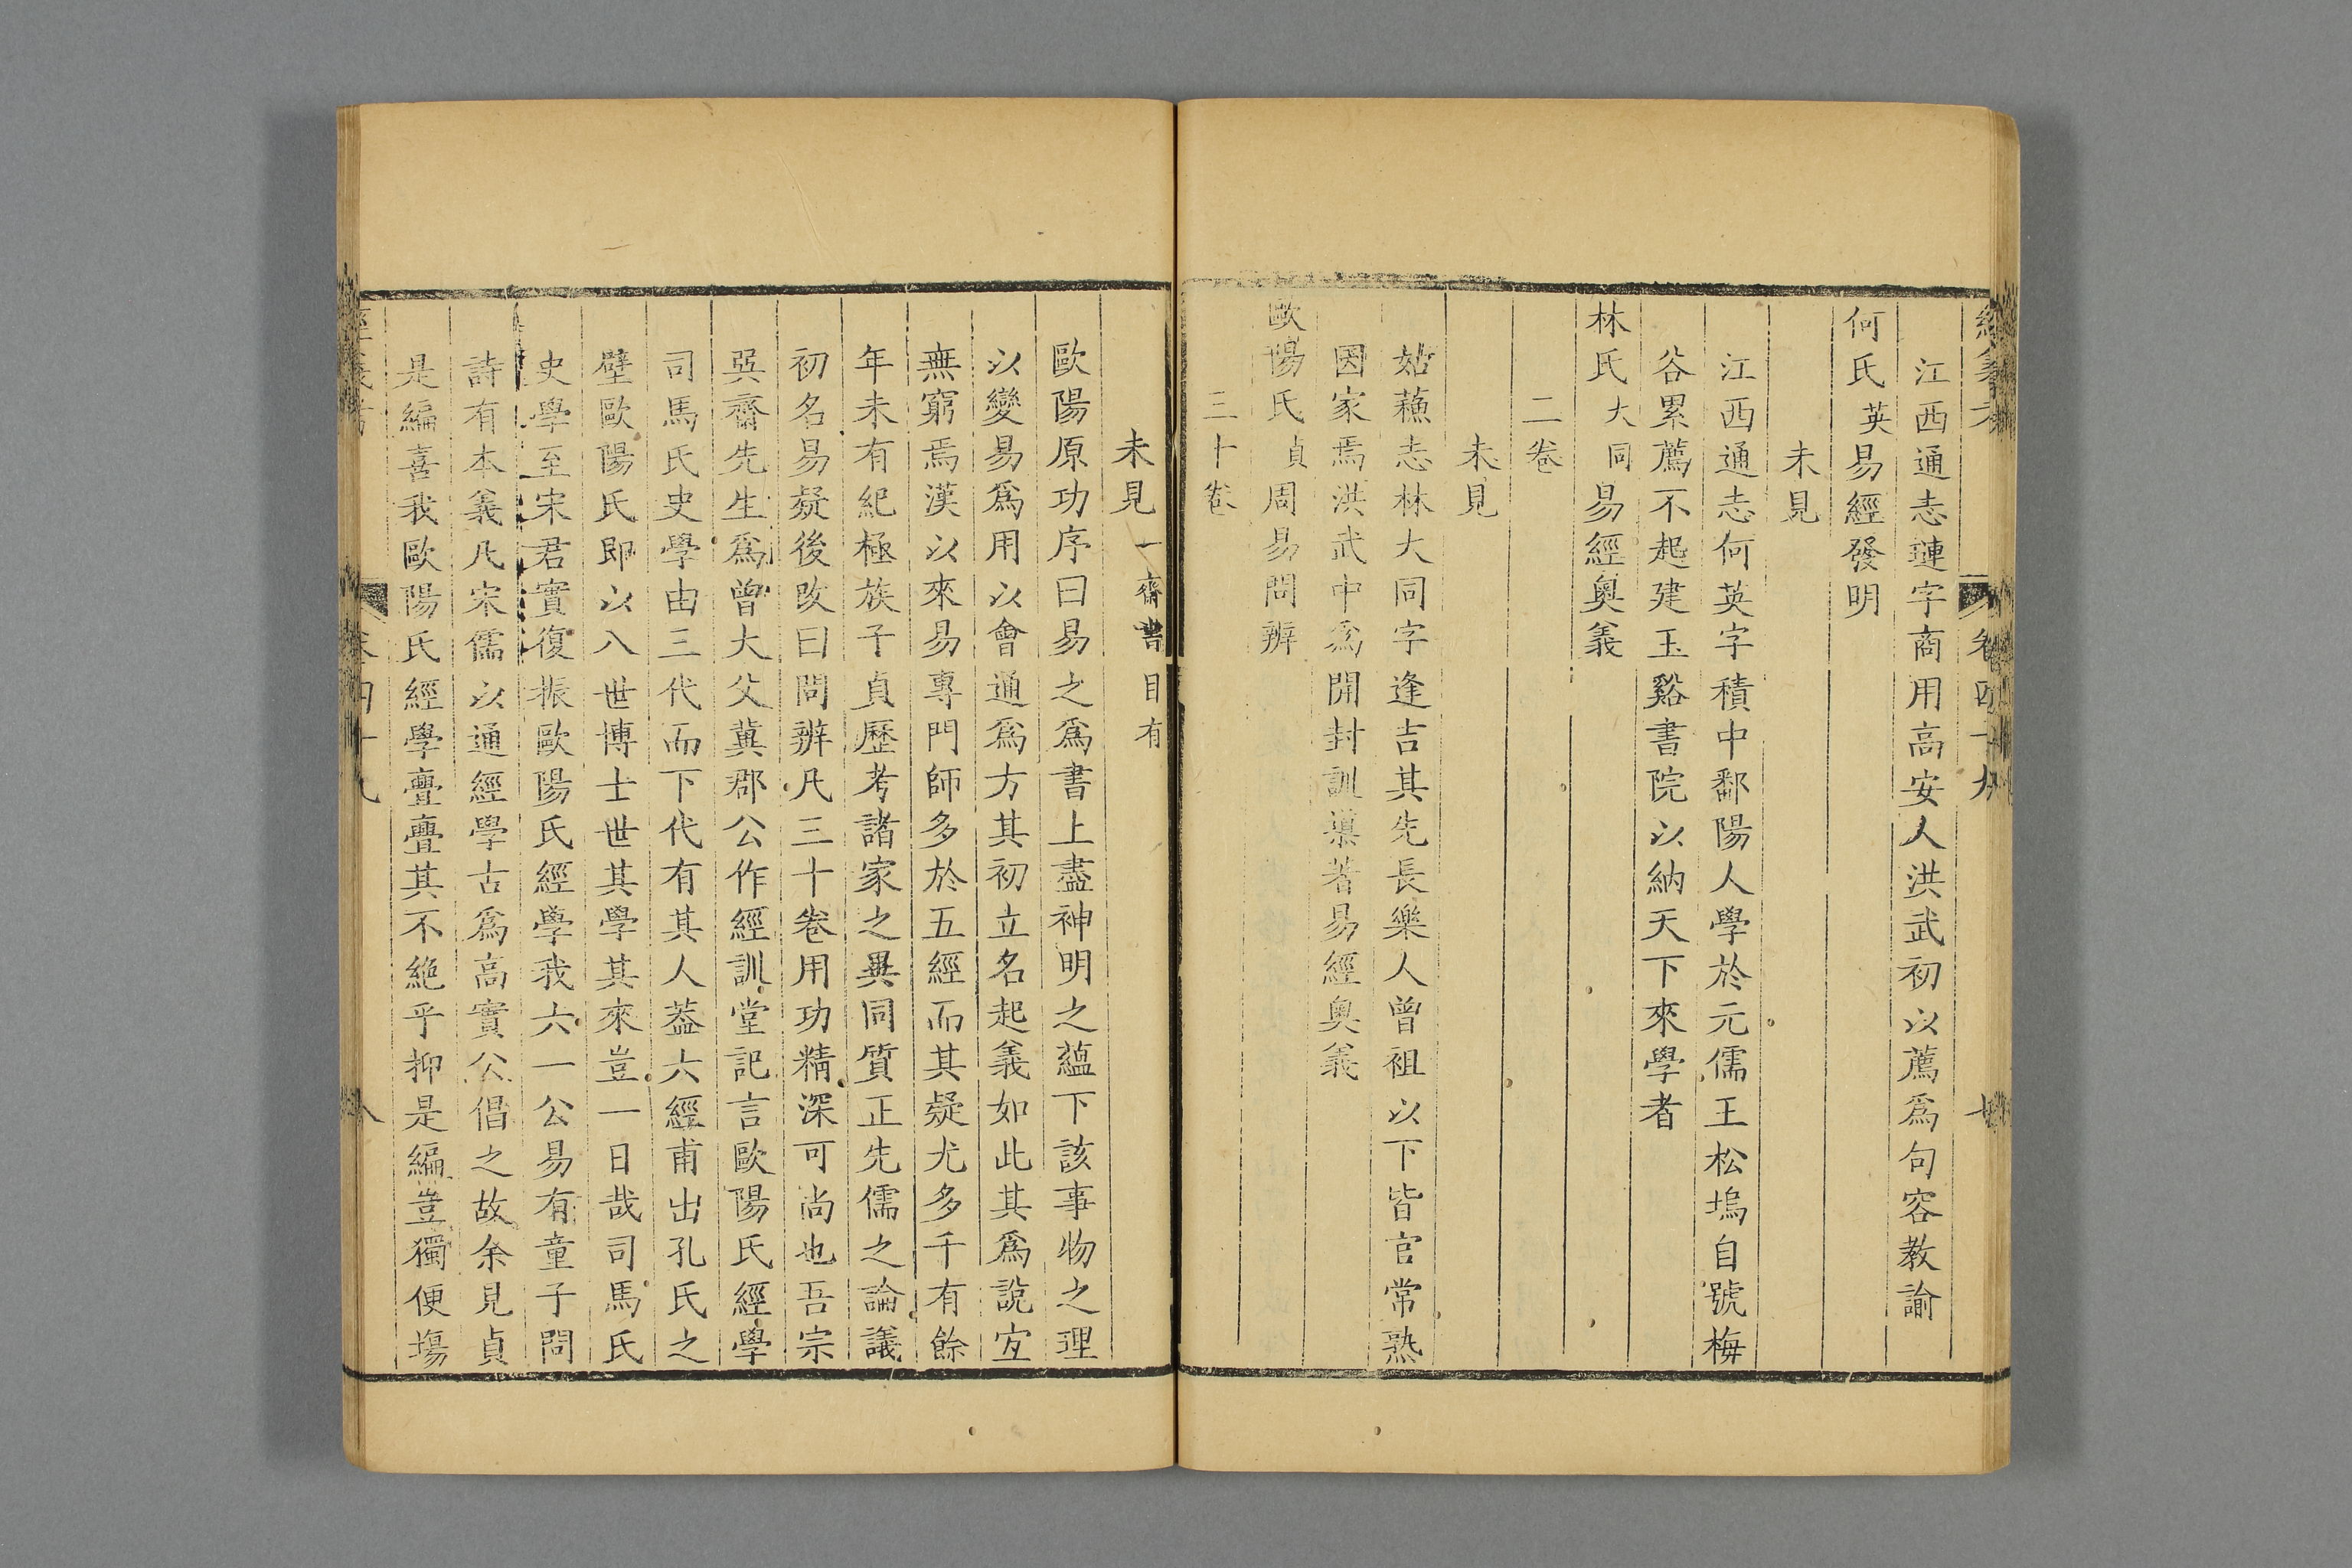 經義考 卷四十九 七
江西通志漣字商用高安人洪武初以薦爲句容教諭
何氏英易經發明
未見
江西通志何英字積中鄱陽人學於元儒王松塢自號梅
谷累薦不起建玉谿書院以納天下來學者
林氏大同易經奧義
二卷
未見
姑蘓志林大同字逢吉其先長樂人曾祖以下皆官常熟
因家焉洪武中爲開封訓導著易經奧義
歐陽氏貞周易問辨
三十卷
未見一齋書目有
歐陽原功序曰易之爲書上盡神明之蘊下該事物之理
以變易爲用以會通爲方其初立名起義如此其爲說宐
無窮焉漢以來易專門師多於五經而其疑尤多千有餘
年未有紀極族子貞歷考諸家之異同質正先儒之論議
初名易疑後改曰問辨凡三十卷用功精深可尚也吾宗
巽齋先生爲曾大父冀郡公作經訓堂記言歐陽氏經學
司馬氏史學由三代而下代有其人葢六經甫出孔氏之
壁歐陽氏即以八世博士世其學其來豈一日哉司馬氏
史學至宋君實復振歐陽氏經學我六一公易有童子問
詩有本義凡宋儒以通經學古爲高實公倡之故余見貞
是編喜我歐陽氏經學亹亹其不絶乎抑是編豈獨便塲
經義考 卷四十九 八